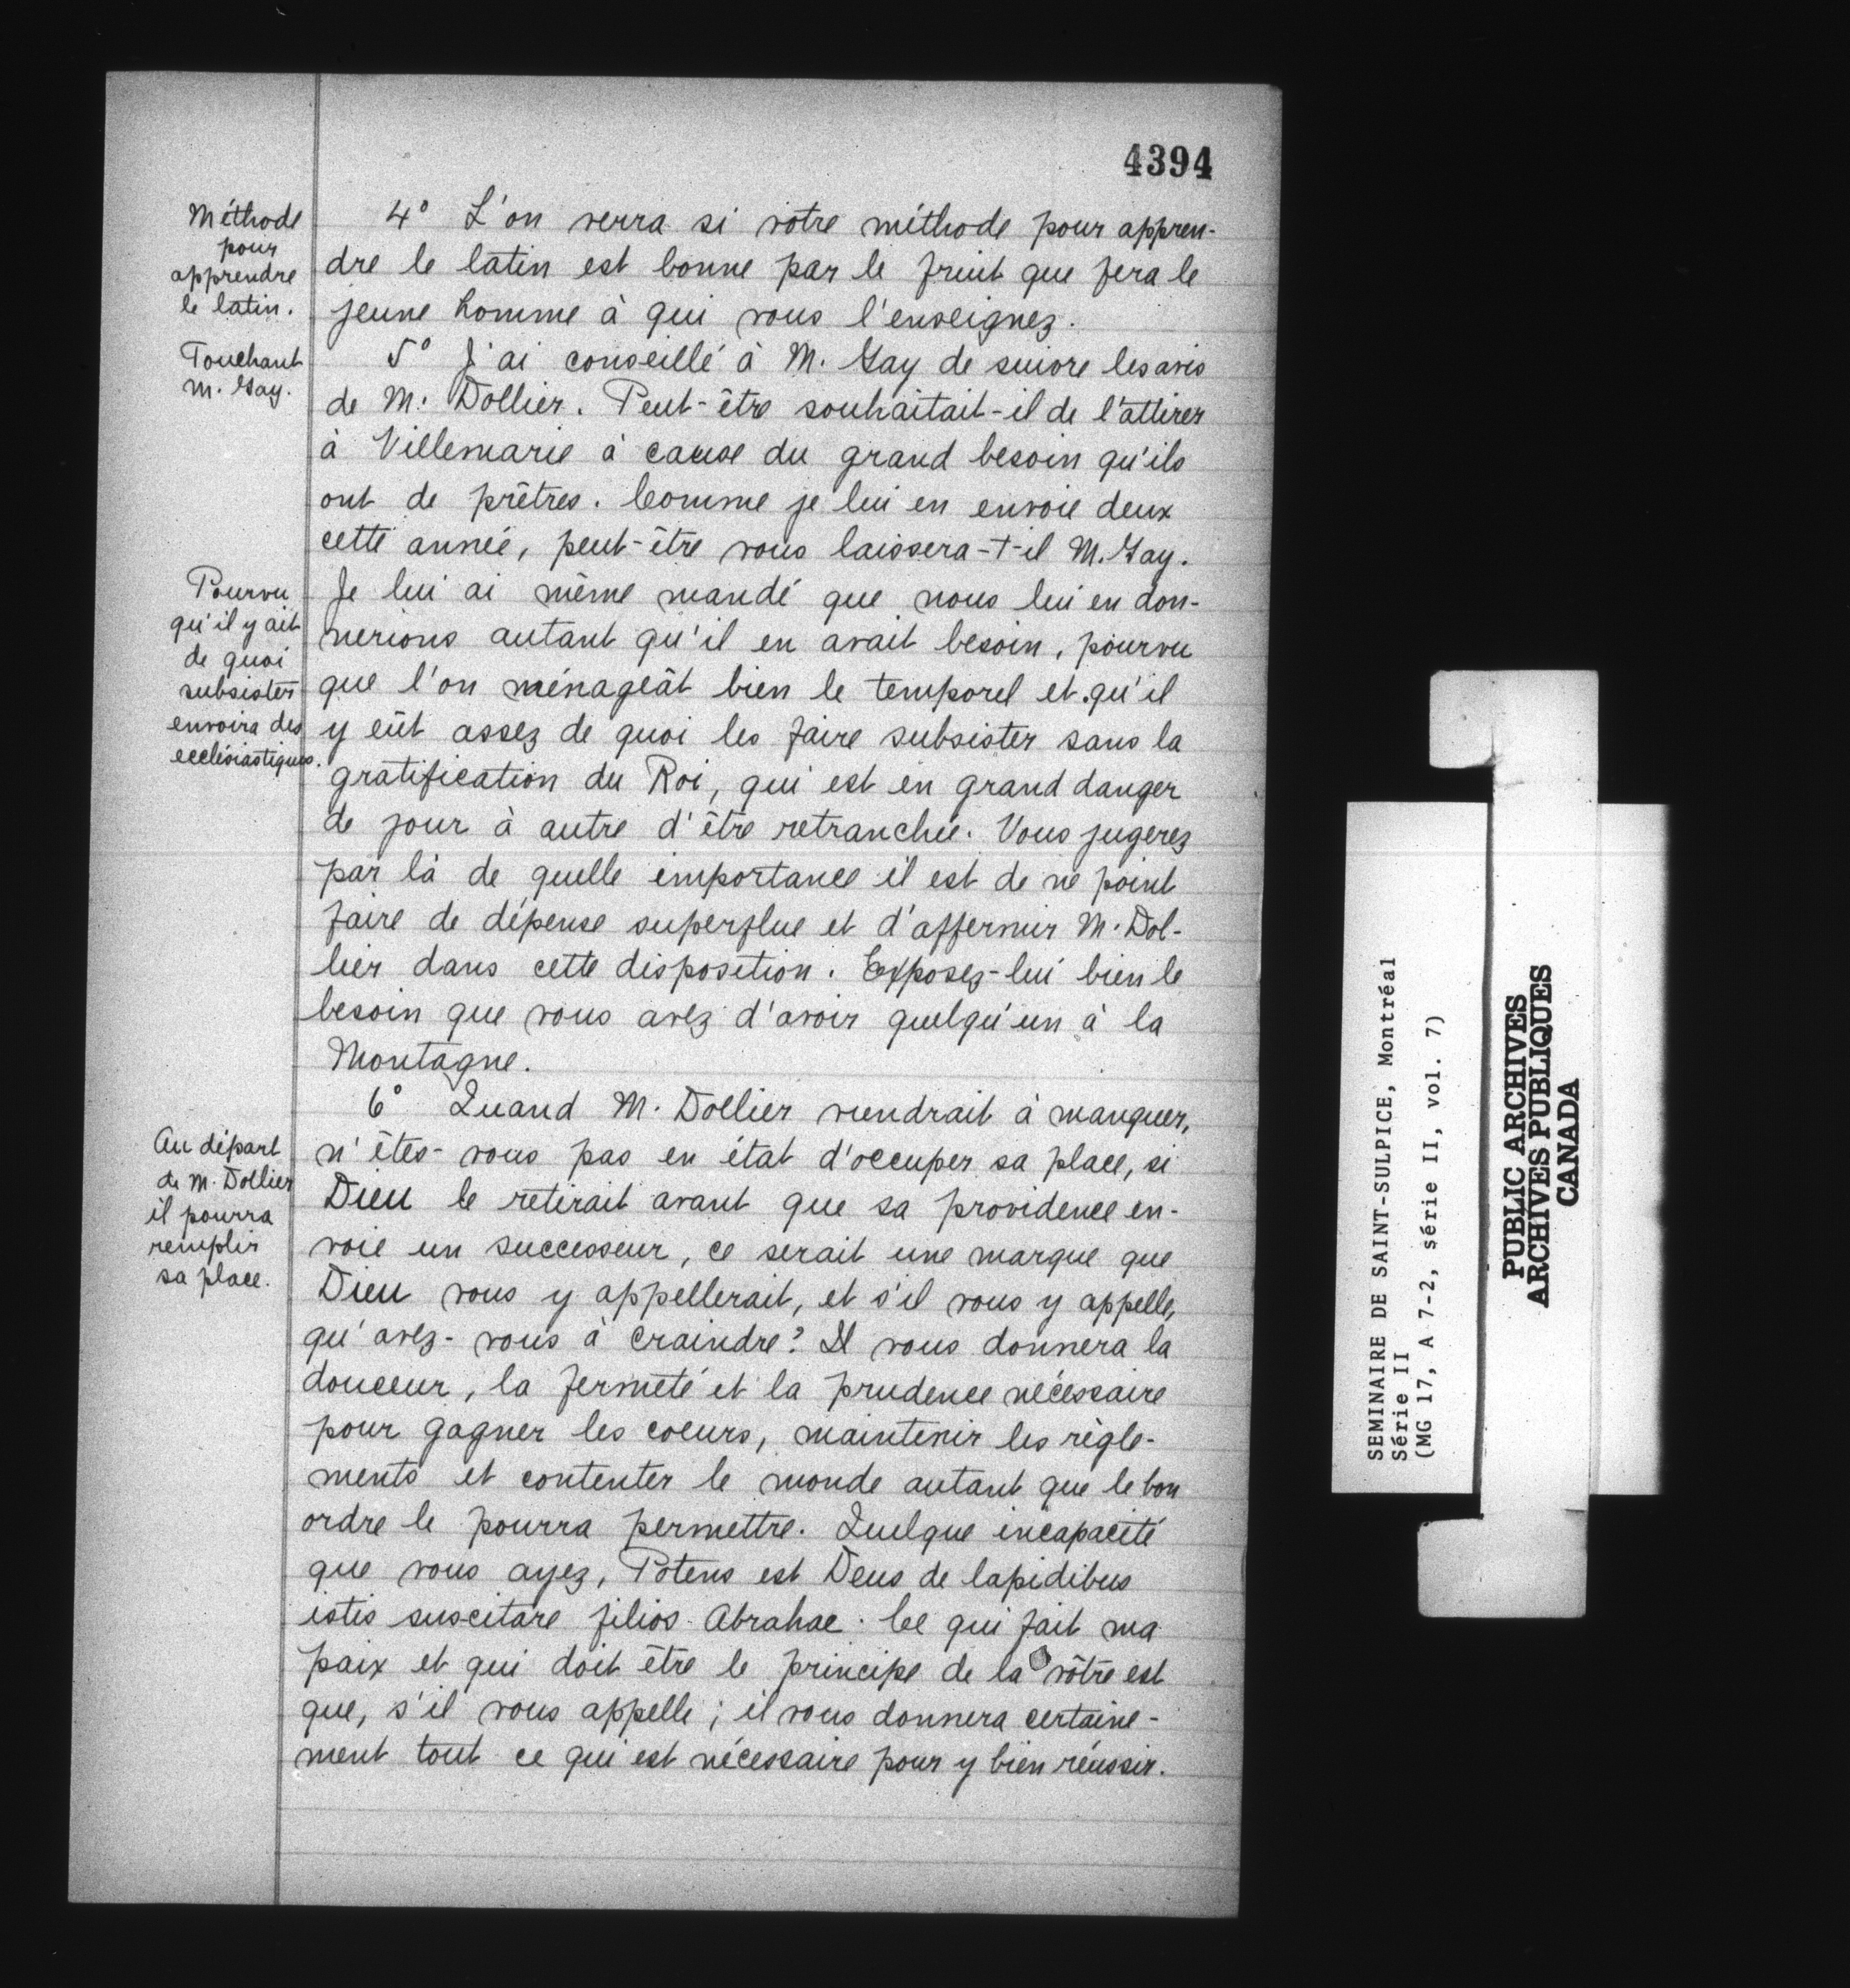 4394
Méthode
pour
apprendre
le latin.
4° L'on verra si votre méthode pour appren-
dre le latin est bonne par le fruit que fera le
jeune homme à qui vous l'enseignez.
Touchant
M. Gay.
5° J'ai conseillé à M. Gay de suivre les avis
de M. Dollier. Peut-être souhaitait-il de l'attirer
à Villemarie à cause du grand besoin qu'ils
ont de prêtres. Comme je lui en envoie deux
cette année, peut-être vous laissera-t-il M. Gay.
Pourvu
qu'il y ait
de quoi
subsister
envoira des
ecclésiastiques.
Je lui ai même mandé que nous lui en don-
nerions autant qu'il en avait besoin, pourvu
que l'on ménageât bien le temporel et qu'il
y eût assez de quoi les faire subsister sans la
gratification du Roi, qui est en grand danger
de jour à autre d'être retranchée. Vous jugerez
par là de quelle importance il est de ne point
faire de dépense superflue et d'affermir M. Dol-
lier dans cette disposition. Exposez-lui bien le
besoin que vous avez d'avoir quelqu'un à la
Montagne.
Au départ
de M. Dollier
il pourra
remplir
sa place.
6° Quand M. Dollier viendrait à manquer,
n'êtes-vous pas en état d'occuper sa place, si
Dieu le retirait avant que sa providence en-
voie un successeur, ce serait une marque que
Dieu vous y appellerait, et s'il vous y appelle,
qu'avez-vous à craindre? Il vous donnera la
douceur, la fermeté et la prudence nécessaire
pour gagner les coeurs, maintenir les règle-
ments et contenter le monde autant que le bon
ordre le pourra permettre. Quelque incapacité
que vous ayez, Potens est Deus de lapidibus
istis suscitare filios Abrahae. Ce qui fait ma
paix et qui doit être le principe de la vôtre est
que, s'il vous appelle; il vous donnera certaine-
ment tout ce qui est nécessaire pour y bien réussir.
SEMINAIRE DE SAINT-SULPICE, Montréal
Série II
(MG 17, A 7-2, série II, vol. 7)
PUBLIC ARCHIVES
ARCHIVES PUBLIQUES
CANADA